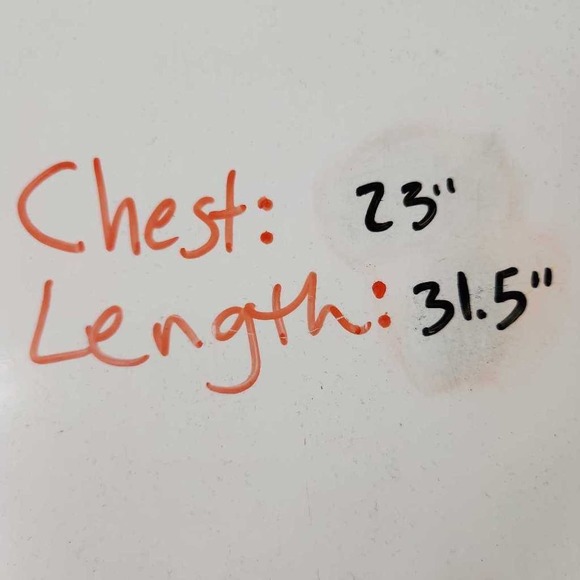 Chest: 23"
Length: 31.5"